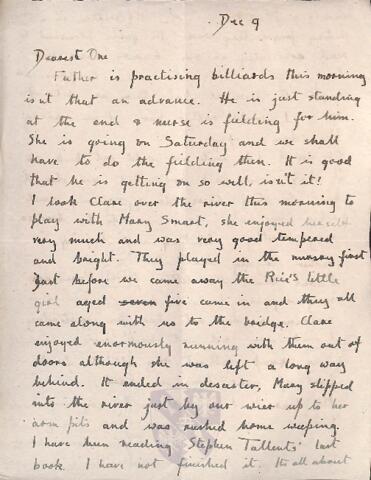 Dec 9
Dearest One
Father is practising billiards this morning
isnt that an advance. He is just standing
at the end & nurse is fielding for him.
She is going on Saturday and we shall
have to do the fielding then. It is good
that he is getting on so well, isn't it!
I took Clare over the river this morning to
play with Mary Smart, she enjoyed herself
very much and was very good tempered
and bright. They played in the nursery first
Just before we came away the Rice's little
girl aged seven five came in and they all
came along with us to the bridge. Clare
enjoyed enormously running with them out of
doors although she was left a long way
behind. It ended in desaster, Mary slipped
into the river just by our wier up to her
arm pits and was rushed home weeping.
I have been reading Stephen Tallents' last
book. I have not finished it. Its all about